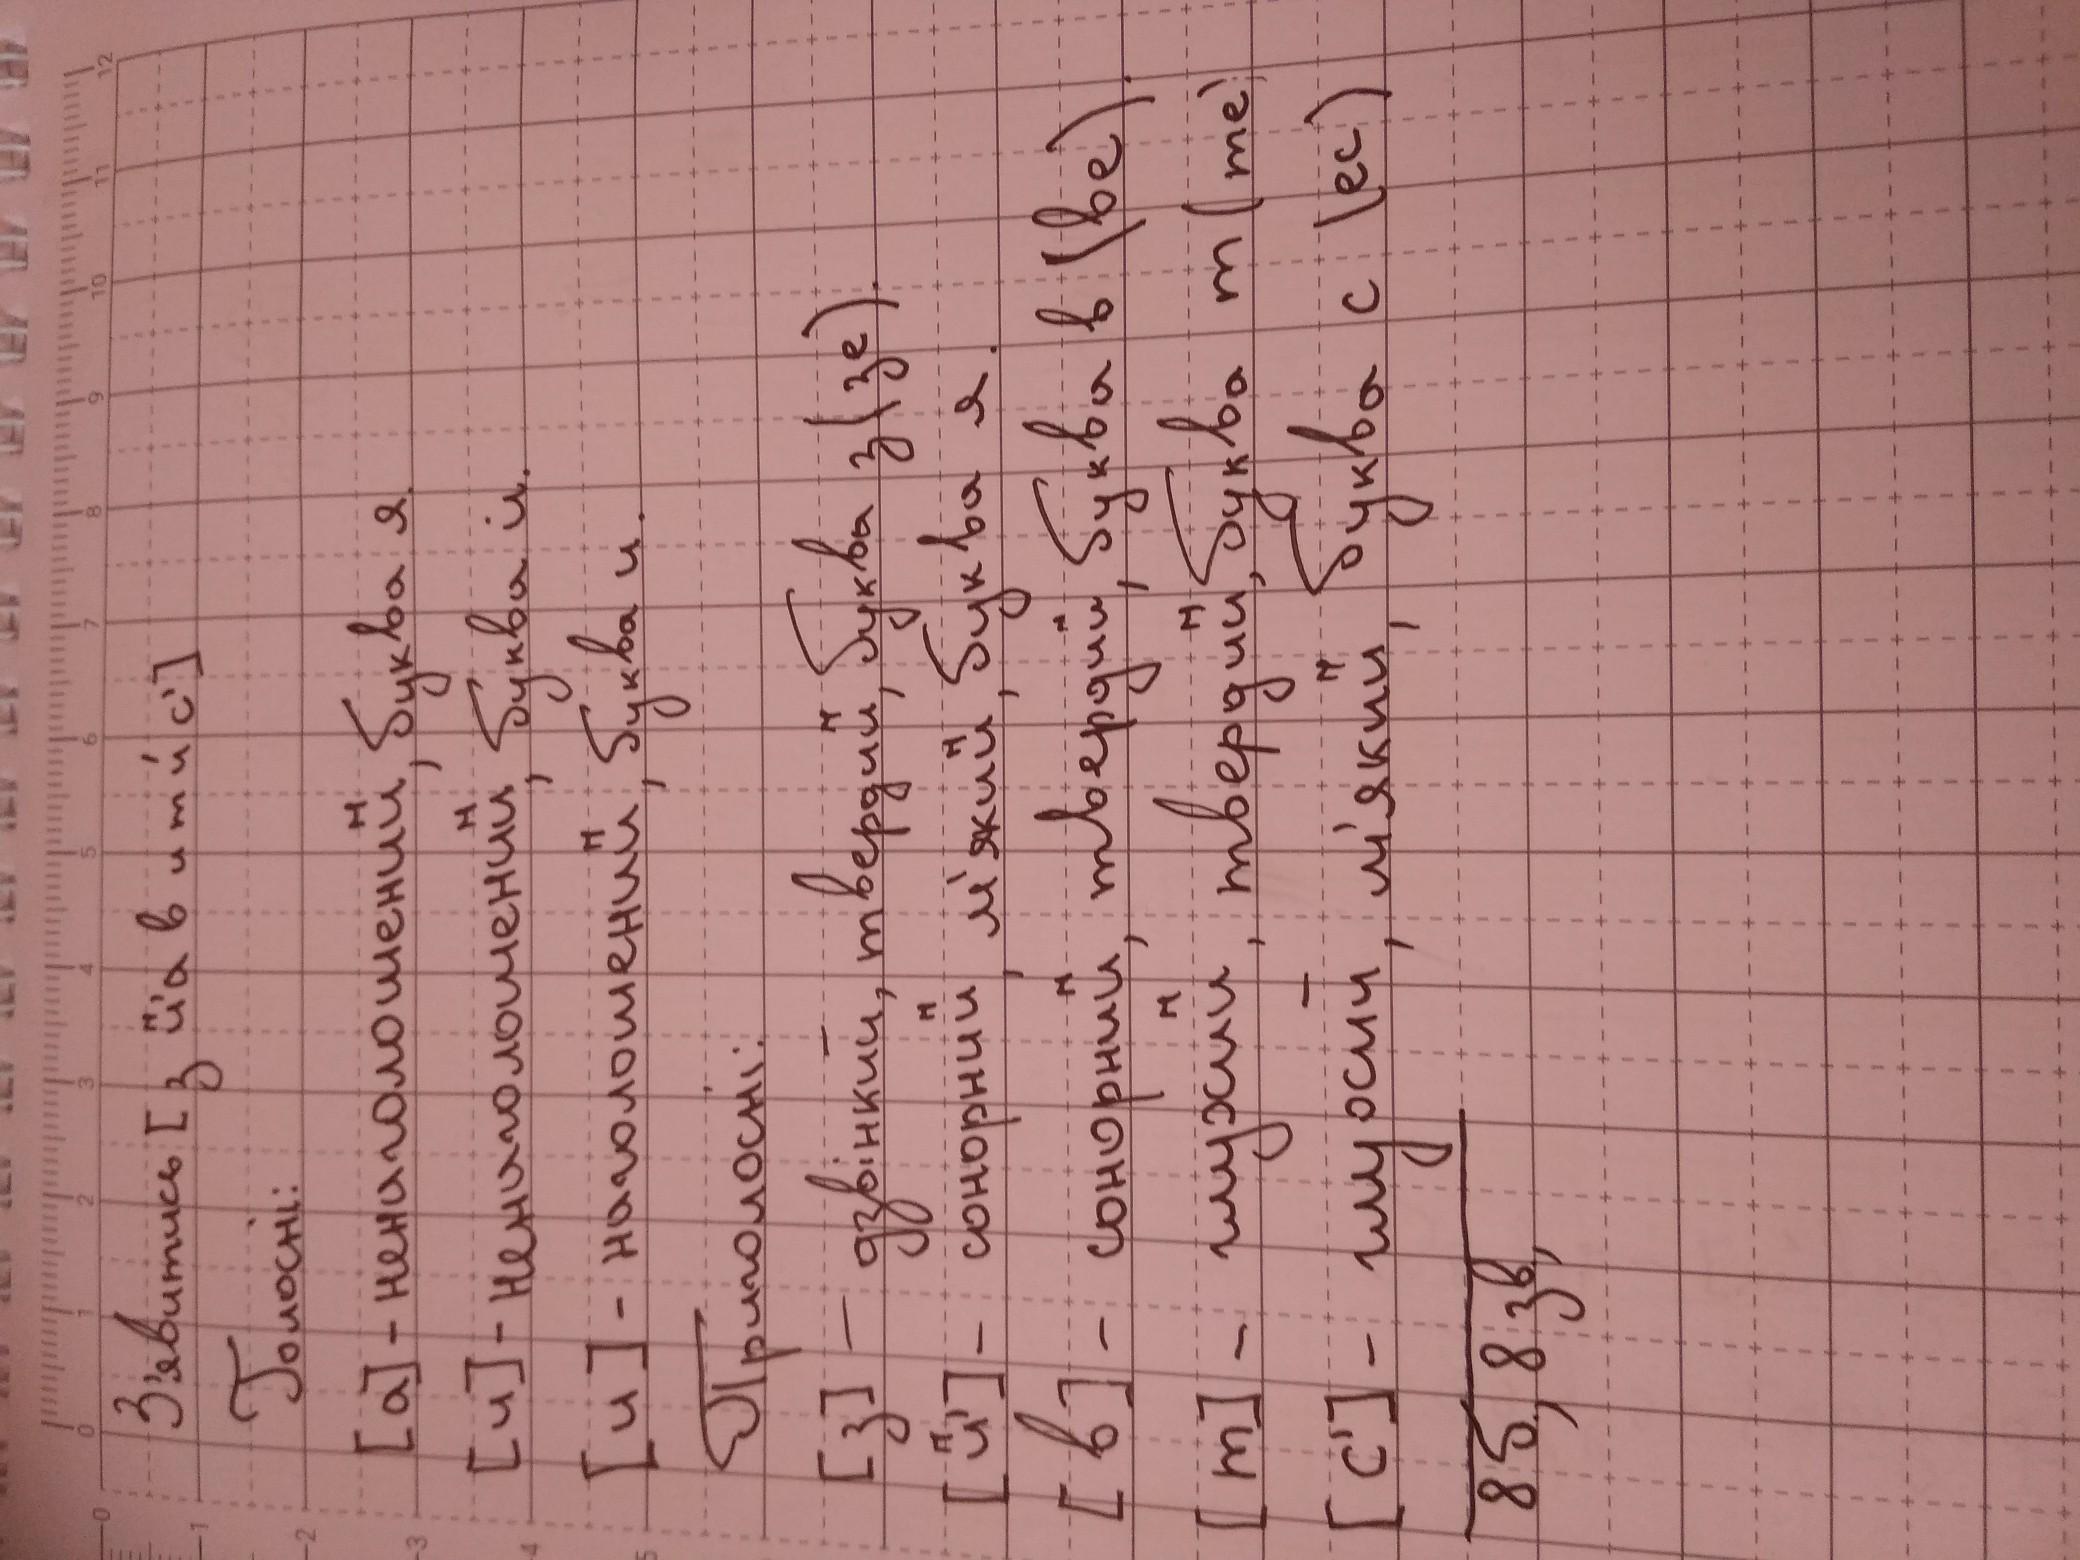 0 1 2 3 4 5 6 7 8 9 10 11 12
0
1
2
3
4
5
З'явитись [з й'а в и т и́ с']
Голосні:
[а] - ненаголошений, буква я.
[и] - ненаголошений, буква и.
[и] - наголошений, буква и.
Приголосні:
[з] – дзвінкий, твердий, буква з (зе).
[й'] - сонорний, м'який, буква я.
[в] - сонорний, твердий, буква в (ве).
[т] - глухий, твердий, буква т (те)
[с'] - глухий, м'який, буква с (ес)
8 б, 8 зв,